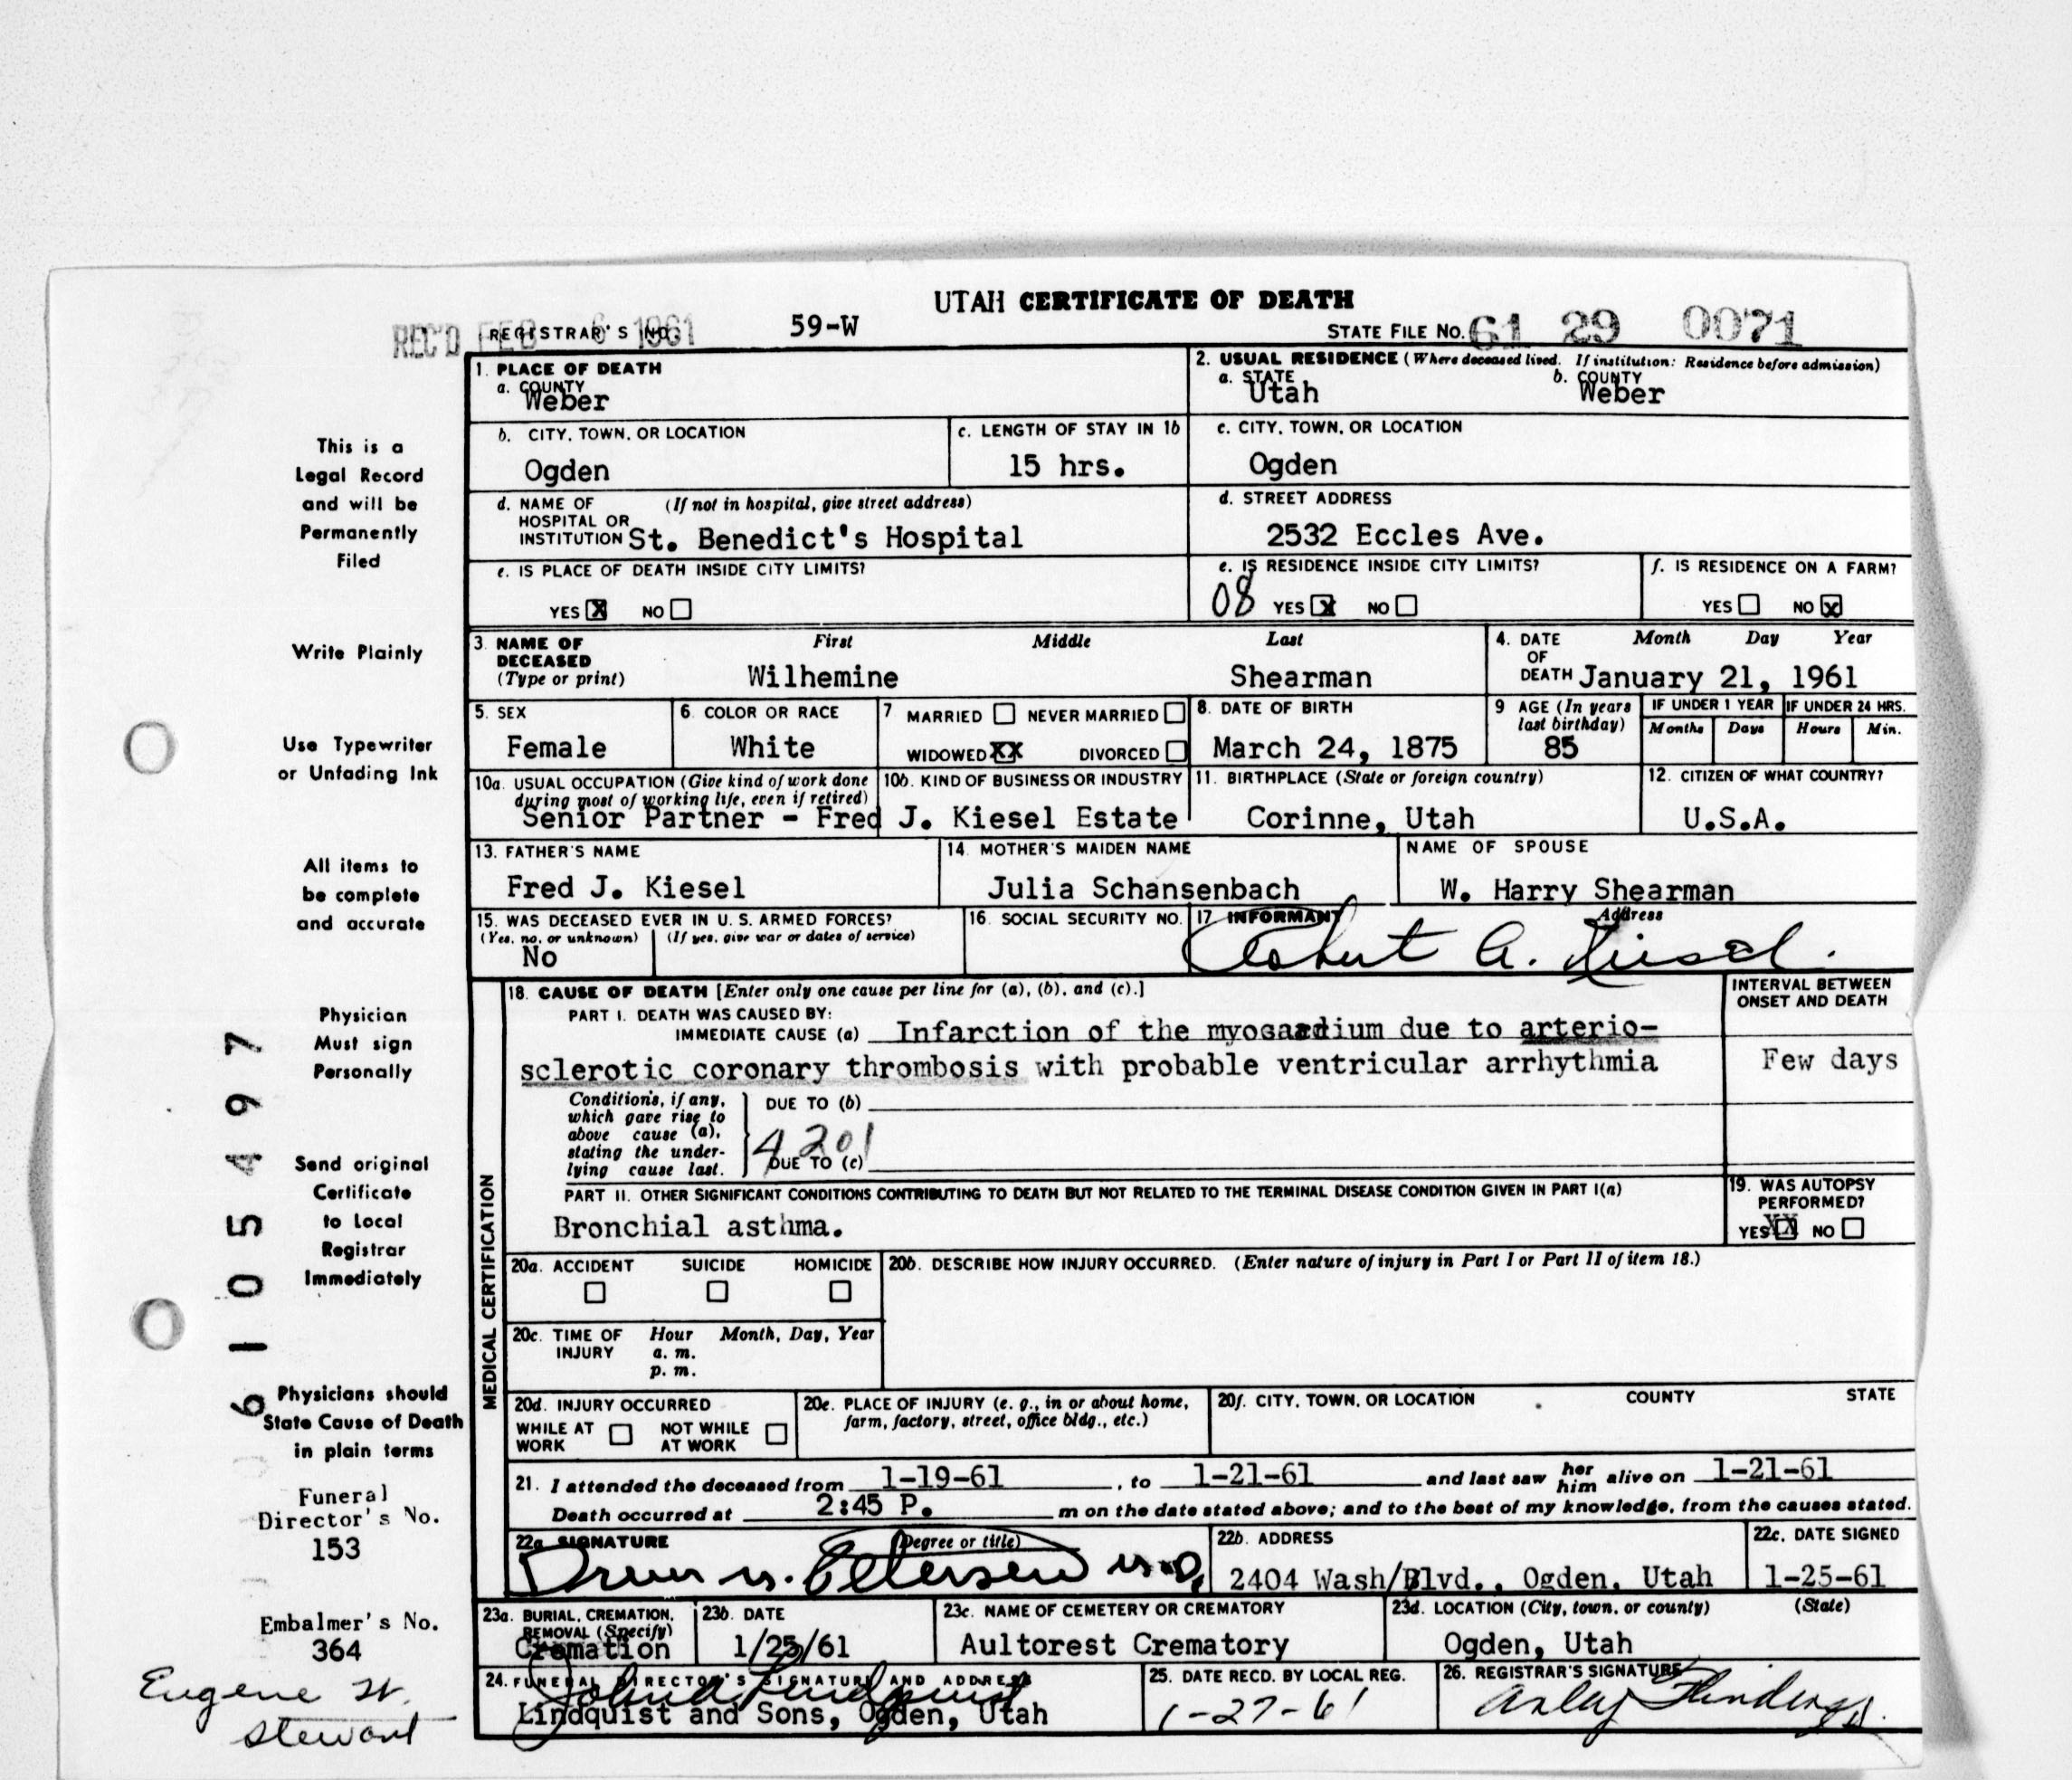 UTAH CERTIFICATE OF DEATH
REC'D FEB 6 1961 REGISTRAR'S NO. 59-W STATE FILE NO. 61 29 0071
1. PLACE OF DEATH
a. COUNTY
Weber
2. USUAL RESIDENCE (Where deceased lived. If institution: Residence before admission)
a. STATE b. COUNTY
Utah Weber
b. CITY, TOWN, OR LOCATION
Ogden
c. LENGTH OF STAY IN 1b
15 hrs.
c. CITY, TOWN, OR LOCATION
Ogden
d. NAME OF (If not in hospital, give street address)
HOSPITAL OR
INSTITUTION St. Benedict's Hospital
d. STREET ADDRESS
2532 Eccles Ave.
e. IS PLACE OF DEATH INSIDE CITY LIMITS?
YES X NO
e. IS RESIDENCE INSIDE CITY LIMITS?
08 YES X NO
f. IS RESIDENCE ON A FARM?
YES NO X
3. NAME OF First Middle Last
DECEASED
(Type or print) Wilhemine Shearman
4. DATE Month Day Year
OF
DEATH January 21, 1961
5. SEX
Female
6. COLOR OR RACE
White
7 MARRIED NEVER MARRIED
WIDOWED XX DIVORCED
8. DATE OF BIRTH
March 24, 1875
9 AGE (In years
last birthday)
85
IF UNDER 1 YEAR IF UNDER 24 HRS.
Months Days Hours Min.
10a. USUAL OCCUPATION (Give kind of work done
during most of working life, even if retired)
10b. KIND OF BUSINESS OR INDUSTRY
Senior Partner - Fred J. Kiesel Estate
11. BIRTHPLACE (State or foreign country)
Corinne, Utah
12. CITIZEN OF WHAT COUNTRY?
U.S.A.
13. FATHER'S NAME
Fred J. Kiesel
14. MOTHER'S MAIDEN NAME
Julia Schansenbach
NAME OF SPOUSE
W. Harry Shearman
15. WAS DECEASED EVER IN U. S. ARMED FORCES?
(Yes, no, or unknown) (If yes, give war or dates of service)
No
16. SOCIAL SECURITY NO.
17. INFORMANT Address
Robert A. Kiesel.
MEDICAL CERTIFICATION
18. CAUSE OF DEATH [Enter only one cause per line for (a), (b), and (c).]
INTERVAL BETWEEN
ONSET AND DEATH
PART I. DEATH WAS CAUSED BY:
IMMEDIATE CAUSE (a) Infarction of the myocardium due to arterio-
sclerotic coronary thrombosis with probable ventricular arrhythmia Few days
Conditions, if any,
which gave rise to
above cause (a),
stating the under-
lying cause last.
DUE TO (b)
4201
DUE TO (c)
PART II. OTHER SIGNIFICANT CONDITIONS CONTRIBUTING TO DEATH BUT NOT RELATED TO THE TERMINAL DISEASE CONDITION GIVEN IN PART I(a)
Bronchial asthma.
19. WAS AUTOPSY
PERFORMED?
YES XX NO
20a. ACCIDENT SUICIDE HOMICIDE
20b. DESCRIBE HOW INJURY OCCURRED. (Enter nature of injury in Part I or Part II of item 18.)
20c. TIME OF Hour Month, Day, Year
INJURY a. m.
p. m.
20d. INJURY OCCURRED
WHILE AT NOT WHILE
WORK AT WORK
20e. PLACE OF INJURY (e. g., in or about home,
farm, factory, street, office bldg., etc.)
20f. CITY, TOWN, OR LOCATION COUNTY STATE
21. I attended the deceased from 1-19-61, to 1-21-61 and last saw her him alive on 1-21-61
Death occurred at 2:45 P. m on the date stated above; and to the best of my knowledge, from the causes stated.
22a. SIGNATURE (Degree or title)
Petersen M.D.
22b. ADDRESS
2404 Wash/Blvd., Ogden, Utah
22c. DATE SIGNED
1-25-61
23a. BURIAL, CREMATION,
REMOVAL (Specify)
Cremation
23b. DATE
1/25/61
23c. NAME OF CEMETERY OR CREMATORY
Aultorest Crematory
23d. LOCATION (City, town, or county) (State)
Ogden, Utah
24. FUNERAL DIRECTOR'S SIGNATURE AND ADDRESS
John A Lindquist
Lindquist and Sons, Ogden, Utah
25. DATE RECD. BY LOCAL REG.
1-27-61
26. REGISTRAR'S SIGNATURE
This is a
Legal Record
and will be
Permanently
Filed
Write Plainly
Use Typewriter
or Unfading Ink
All items to
be complete
and accurate
Physician
Must sign
Personally
Send original
Certificate
to Local
Registrar
Immediately
Physicians should
State Cause of Death
in plain terms
Funeral
Director's No.
153
Embalmer's No.
364
Eugene W.
Stewart
6105497